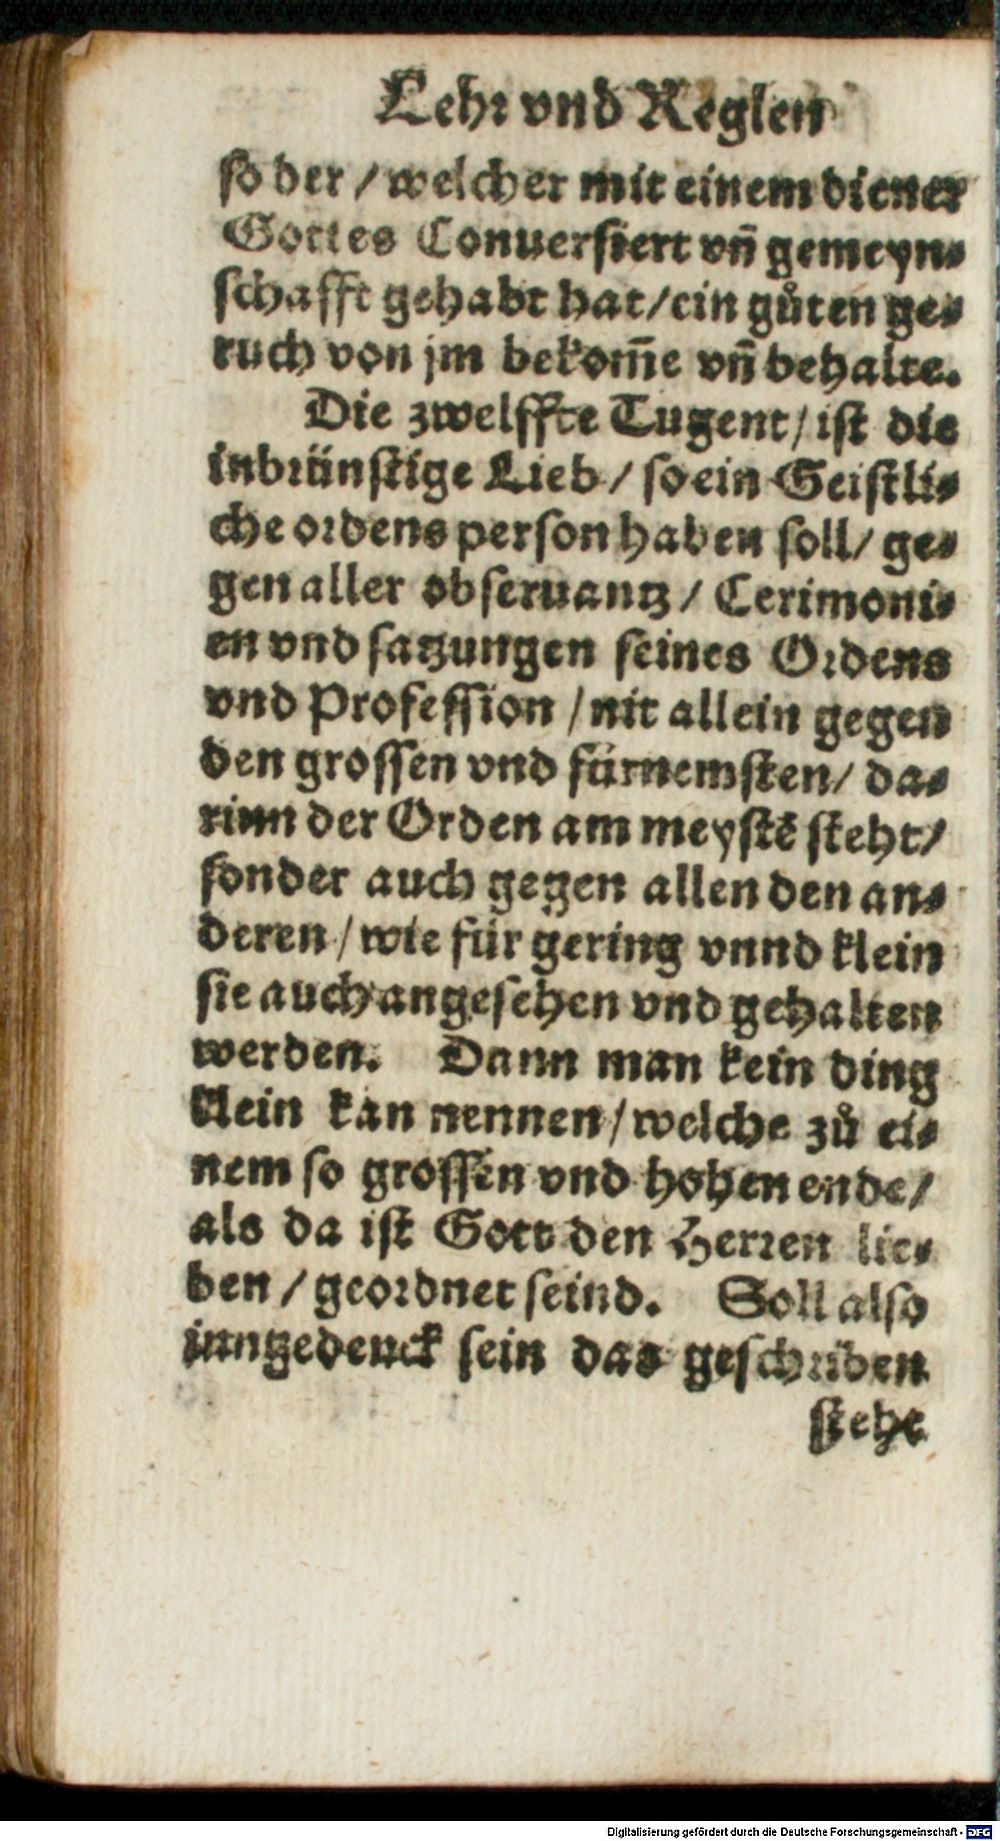 Lehr vnd Reglen
so der / welcher mit einem diener
Gottes Conuersiert vn̄ gemeyn⸗
schafft gehabt hat / ein gůten ge⸗
ruch von jm bekom̄e vn̄ behalte.
Die zwelffte Tugent / ist die
inbrünstige Lieb / so ein Geistli⸗
che ordens person haben soll / ge⸗
gen aller obseruantz / Cerimoni⸗
en vnd satzungen seines Ordens
vnd Profession / nit allein gegen
den grossen vnd fürnemsten / da⸗
rinn der Orden am meystē steht /
sonder auch gegen allen den an⸗
deren / wie für gering vnnd klein
sie auch angesehen vnd gehalten
werden. Dann man kein ding
klein kan nennen / welche zů ei⸗
nem so grossen vnd hohen ende /
als da ist Gott den Herren lie⸗
ben / geordnet seind. Soll also
inngedenck sein das geschriben
stehe
Digitalisierung gefördert durch die Deutsche Forschungsgemeinschaft - DFG